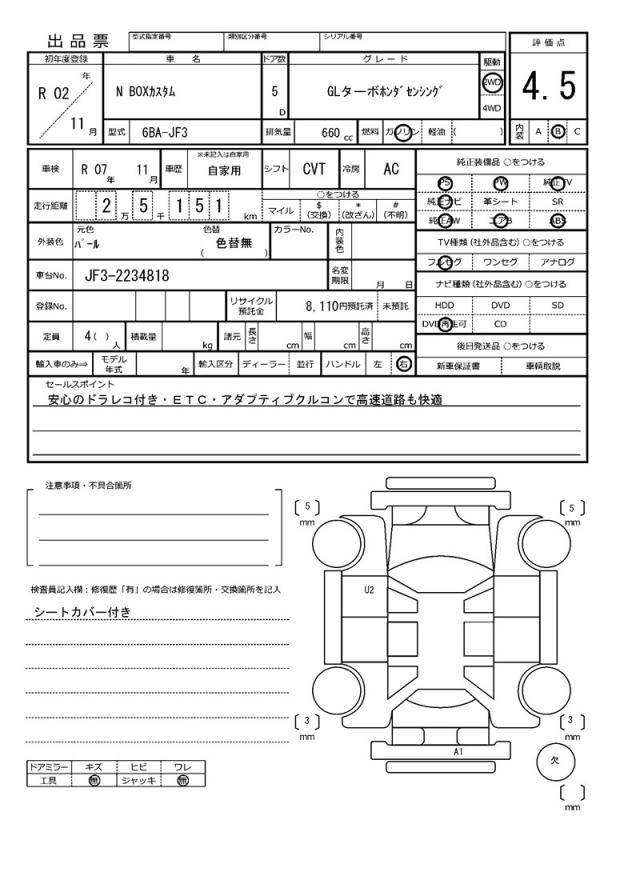 出品票
型式指定番号
類別区分番号
シリアル番号
評価点
4.5
初年度登録
車 名
ドア数
グレード
駆動
R 02 年 11 月
N BOXカスタム
5 D
GLターボホンダセンシング
2WD
4WD
型式 6BA-JF3
排気量 660 cc
燃料 ガソリン 軽油 ( )
内装 A B C
車検 R 07 年 11 月
車歴 ※未記入は自家用 自家用
シフト CVT
冷房 AC
純正装備品 ○をつける
PS PW 純正TV
純正ナビ 革シート SR
純正AW エアB ABS
走行距離 2 万 5 千 1 5 1 km
○をつける
マイル $(交換) *(改ざん) #(不明)
外装色 元色 パール 色替 色替無 ( )
カラーNo.
内装色
TV種類(社外品含む) ○をつける
フルセグ ワンセグ アナログ
車台No. JF3-2234818
名変期限 月 日
ナビ種類(社外品含む) ○をつける
HDD DVD SD
DVD再生可 CD
登録No.
リサイクル預託金 8,110円預託済 未預託
定員 4( )人
積載量 kg
諸元 長さ cm 幅 cm 高さ cm
後日発送品 ○をつける
新車保証書 車輌取説
輸入車のみ⇒ モデル年式 年
輸入区分 ディーラー 並行 ハンドル 左 右
セールスポイント
安心のドラレコ付き・ETC・アダプティブクルコンで高速道路も快適
注意事項・不具合箇所
検査員記入欄:修復歴「有」の場合は修復箇所・交換箇所を記入
シートカバー付き
ドアミラー キズ ヒビ ワレ
工具 無 ジャッキ 無
5 mm
5 mm
U2
3 mm
3 mm
A1
欠
mm